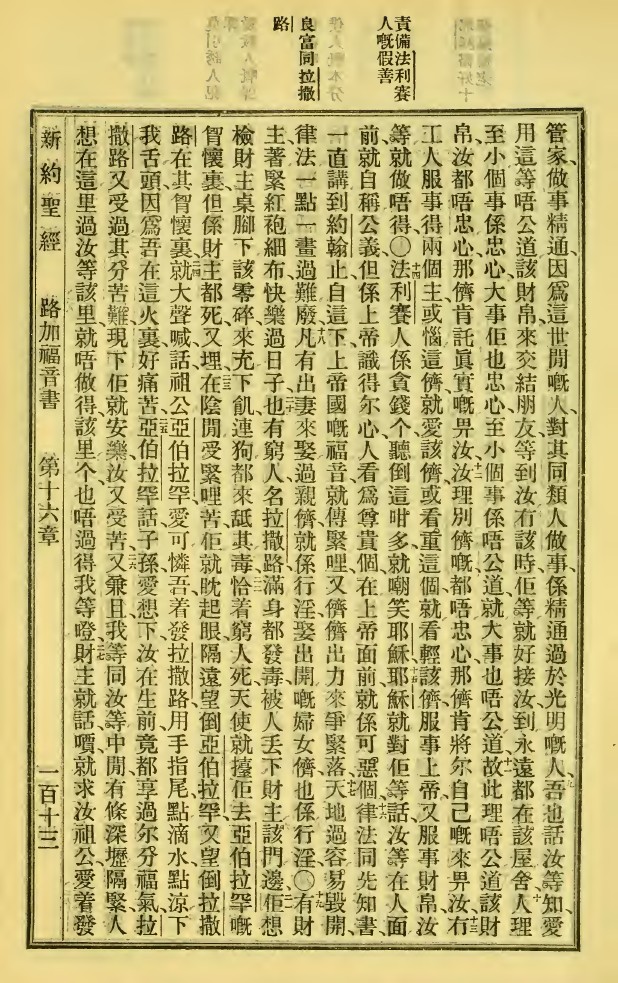 責備法利賽
人嘅假善
良富同拉撒
路
管家、做事精通、因爲這世間嘅人、對其同類人做事、係精通過於光明嘅人、九吾也話汝等知、愛
用這等唔公道該財帛來交結朋友、等到汝冇該時、佢等就好接汝到永遠都在該屋舍、十人理
至小個事係忠心、大事佢也忠心、至小個事係唔公道、就大事也唔公道、十一故此理唔公道該財
帛、汝都唔忠心、那儕肯託眞實嘅畀汝、十二汝理別儕嘅都唔忠心、那儕肯將尔自己嘅來畀汝、十三冇
工人服事得兩個主、或惱這儕、就愛該儕、或看重這個、就看輕該儕、服事上帝、又服事財帛、汝
等就做唔得、〇十四法利賽人係貪錢个、聽倒這咁多、就嘲笑耶穌、十五耶穌就對佢等話、汝等在人面
前就自稱公義、但係上帝識得尔心、人看爲尊貴個、在上帝面前就係可惡個、十六律法同先知書、
一直講到約翰止、自這下上帝國嘅福音就傳緊哩、又儕儕出力來爭緊落、十七天地過容易毀開、
律法一點一畫過難廢、十八凡有出妻來娶過親儕、就係行淫、娶出開嘅婦女儕、也係行淫、〇十九有財
主著緊紅袍細布、快樂過日子、二十也有窮人名拉撒路、滿身都發毒、被人丢下財主該門邊、二一佢想
檢財主桌腳下該零碎來充下飢、連狗都來舐其毒、二二恰着窮人死、天使就擡佢去亞伯拉罕嘅
胷懷裏、但係財主都死又埋、二三在陰間受緊哩苦、佢就眈起眼、隔遠望倒亞伯拉罕、又望倒拉撒
路在其胷懷裏、二四就大聲喊話、祖公亞伯拉罕、愛可憐吾、着發拉撒路、用手指尾點滴水、點涼下
我舌頭、因爲吾在這火裏好痛苦、二五亞伯拉罕話、子孫、愛想下汝在生前、竟都享過尔分福氣、拉
撒路又受過其分苦難、現下佢就安樂、汝又受苦、二六又兼且、我等同汝等中間、有條深壢隔緊、人
想在這里過汝等該里、就唔做得、該里个也唔過得我等噔、二七財主就話、嚽就求汝祖公愛着發
新約聖經　路加福音書　第十六章　一百十三